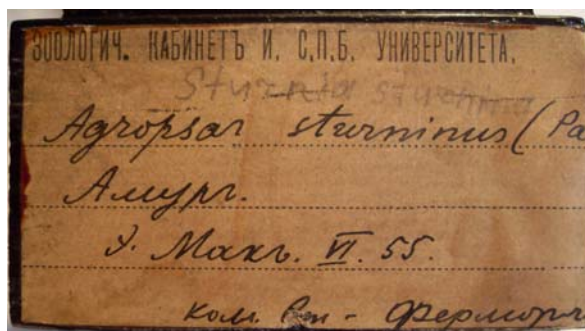 ЗООЛОГИЧ. КАБИНЕТЪ И. С.П.Б. УНИВЕРСИТЕТА.
Sturnia sturnina
Agropsar sturninus (Pa
Амуръ.
Макъ. VI. 55.
колл.